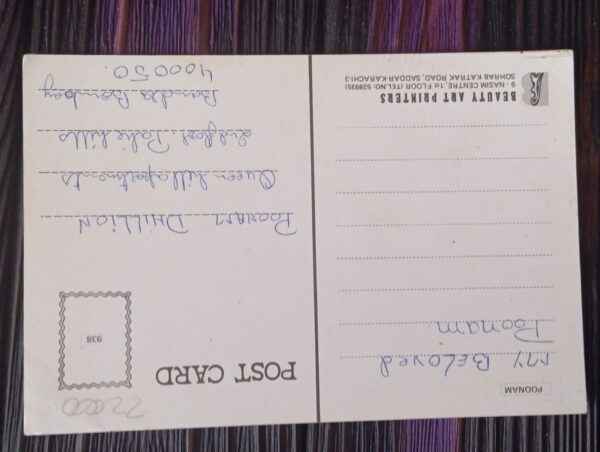 POONAM
MY BELOVED
Poonam
BEAUTY ART PRINTERS
9 - NASIM CENTRE, 1st FLOOR (TELNO. 528935)
SOHRAB KATRAK ROAD, SADDAR-KARACHI-3
POST CARD
938
POONAM DHILLION
Queen hill apartments
2nd floor. Pali hills
Bandra Bombay
400050.